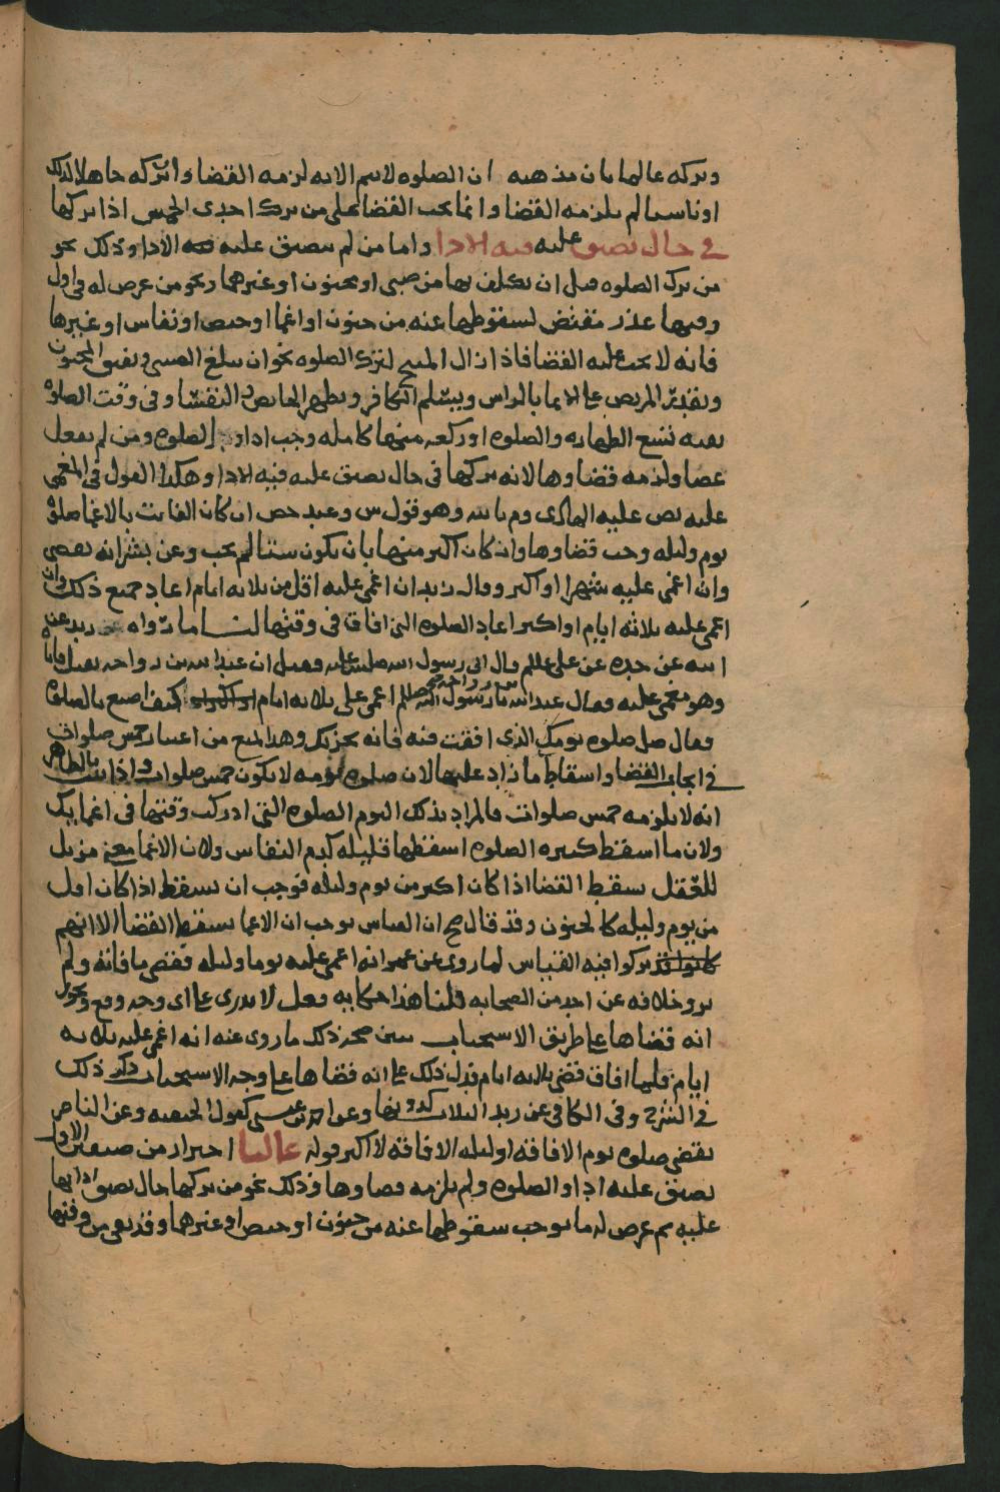 وتركه عالما بان مذهبه ان الصلوه لا تتم الا به لزمه القضا وان تركه جاهلا لذلك
او ناسيا لم يلزمه القضا وانما يجب القضا على من ترك احدى الخمس اذا تركها
في حال تضيق عليه فيه الادا واما من لم يتضيق عليه فيه الادا وذلك نحو
من ترك الصلوه قبل ان يكلف بها من صبى او مجنون او غيرهما ونحو من عرض له في اول
وقتها عذر مقتض لسقوطها عنه من جنون او اغما او حيض او نفاس او غيرها
فانه لا يجب عليه القضا فاذا زال المبيح لترك الصلوه نحو ان يبلغ الصبى ويفيق المجنون
ويقدر المريض على الايما بالراس ويسلم الكافر وتطهر الحايض والنفسا وفى وقت الصلوه
بقيه تتسع الطهاره والصلوه او ركعه منها كامله وجب ادا الصلوه ومن لم يفعل
عصا ولزمه قضاوها لانه تركها فى حال تضيق عليه فيه الادا وهكذا القول فى المغمى
عليه نص عليه الهادى وم بالله وهو قول س وعند حص ان كان الفايت بالاغما صلوه
يوم وليله وجب قضاوها وان كان اكثر منها بان يكون ستا لم يجب وعن بشر انه يقضى
وان اغمى عليه شهرا او اكثر وقال زيد ان اغمى عليه اقل من ثلاثه ايام اعاد جميع ذلك وان
اغمى عليه ثلاثه ايام او اكثر اعاد الصلوه التى افاق فى وقتها لنا ما رواه زيد عن
ابيه عن جده عن على عللم قال اتى رسول الله صلى الله عليه فقيل ان عبد الله بن رواحه ثقيل فاتاه
وهو مغمى عليه فقال عبد الله بن رواحه يا رسول الله صللم اغمى على ثلاثه ايام كيف اصنع بالصلوه
فقال صل صلوه يومك الذى افقت فيه فانه يجزيك وهذا يمنع من اعتبار خمس صلوات
في ايجاب القضا واسقاط ما زاد عليها لان صلوه يومه لا يكون خمس صلوات واذا ثبت بالظاهر
انه لا يلزمه خمس صلوات فالمراد بذلك اليوم الصلوه التى ادركت وقتها فى اغمايك
ولان ما اسقط كثيره الصلوه اسقطها قليله كدم النفاس ولان الاغما معنى مزيل
للعقل يسقط القضا اذا كان اكثر من يوم وليله فوجب ان يسقط اذا كان اقل
من يوم وليله كالجنون وقد قال ح ان القياس يوجب ان الاغما يسقط القضا الا انهم
تركوا فيه القياس لما روى عن عمر انه اغمى عليه يوما وليله فقضى ما فاته ولم
يرو خلافه عن احد من الصحابه قلنا هذا حكايه فعل لا يدرى على اى وجه وقع ويجوز
انه قضاها على طريق الاستحباب يبين صحه ذلك ما روى عنه انه اغمى عليه ثلاثه
ايام فلما افاق قضى ثلاثه ايام فدل ذلك على انه قضاها على وجه الاستحباب ذكر ذلك
في الشرح وفى الكافى عن زيد الثلاث كدونها وعن عيسى كقول الحنفيه وعن الناصر
يقضى صلوه يوم الافاقه او ليله الافاقه لا اكثر قوله غالبا احتراز من صورتين الاولى
تضيق عليه ادا الصلوه ولم يلزمه قضاوها وذلك نحو من تركها حال تضيق ادايها
عليه ثم عرض له ما يوجب سقوطها عنه من جنون او حيض او غيرهما وقد بقى من وقتها